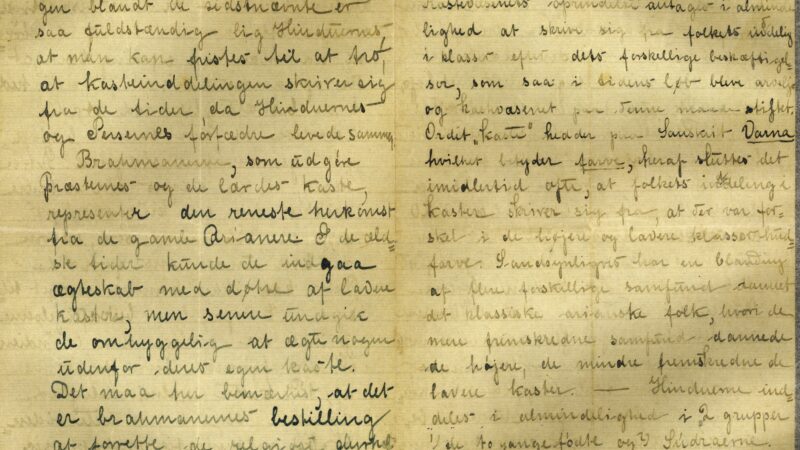 gen blandt de sidstnævnte er
saa fuldstændig lig Hinduernes,
at man kan fristes til at tro,
at kasteinddelingen skriver sig
fra de tider da Hinduernes
og Persernes forfædre levede sammen
Brahmanerne, som udgøre
præsternes og de lærdes kaste,
representer den reneste herkomst
fra de gamle Arianere. I de æld-
ste tider kunde de indgaa
ægteskab med døtre af lavere
kaster, men senere undgik
de omhyggelig at ægte nogen
udenfor deres egen kaste.
Det maa her bemærkes, at det
er brahmanernes bestilling
at forrette de religiøse
Kastevæsenets oprindelse antages i alminde
lighed at skrive sig fra folkets inddeling
i klasser efter dets forskellige beskæftigel-
ser, som saa i tidens løb bleve
og kastevæsenet paa denne maade stiftet.
Ordet "kaste" hedder paa Sanskrit Varna
hvilket betyder farve, heraf sluttes det
imidlertid ofte, at folkets inddeling i
kaster skriver sig fra, at der var for-
skel i de højere og lavere klassers hud-
farve. Sandsynligvis har en blanding
af flere forskellige samfund dannet
det klassiske arianske folk, hvori de
mere fremskredne samfund dannede
de højere, de mindre fremskredne de
lavere kaster. — Hinduerne ind-
deles i almindelighed i 2 grupper
1/ de to gange fødte og 2/ Sudraerne.